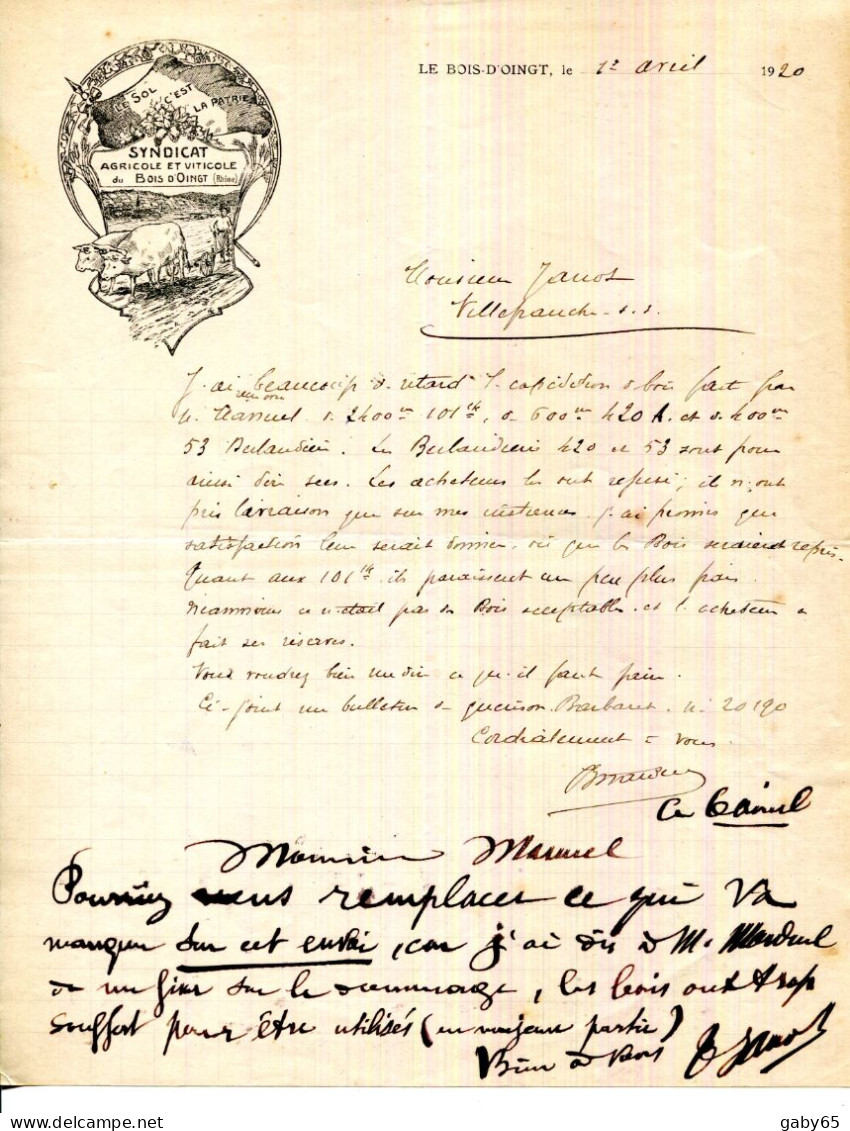 LE BOIS-D'OINGT, le 12 avril 1920
LE SOL C'EST LA PATRIE
SYNDICAT
AGRICOLE ET VITICOLE
du BOIS D'OINGT (Rhône)
Monsieur Janot
Villefranche s. s.
J'ai beaucoup de retard l'expédition de bois fait par
M. de 2400 101 14, de 600 420 A. et de 400
53 Berlandieri. Les Berlandieri 420 et 53 sont pour
ainsi dire secs. Les acheteurs les ont refusé; ils n'ont
pris livraison que sur mes instances. J'ai promis que
satisfaction leur serait donnée, dès que les Bois seraient repris.
Quant aux 101 14 ils paraissent un peu plus frais
Néanmoins ce n'était pas des Bois acceptables et l'acheteur a
fait ses réserves.
Vous voudrez bien me dire ce qu'il faut faire.
Ci-joint un bulletin de Barbaret. n: 20190
Cordialement à vous
Monsieur
Pourriez vous remplacer ce qui va
manquer sur cet envoi, car j'ai dis à M.
sur le dommage, les bois ont trop
souffert pour être utilisés (en majeure partie)
Bien à vous Janot
gaby65